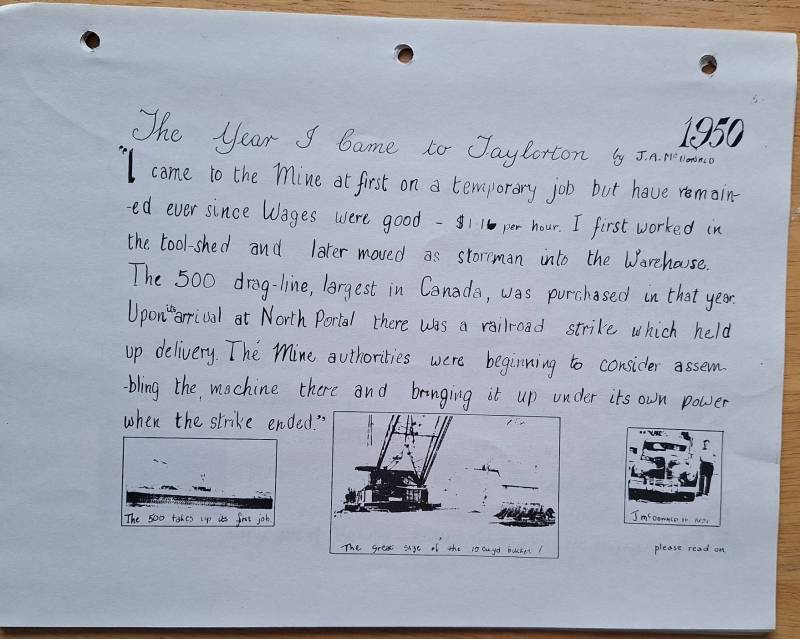 The Year I Came to Taylorton by J.A. McDonald
1950
"I came to the Mine at first on a temporary job but have remain-
-ed ever since Wages were good - $1.16 per hour. I first worked in
the tool-shed and later moved as storeman into the Warehouse.
The 500 drag-line, largest in Canada, was purchased in that year.
Upon its arrival at North Portal there was a railroad strike which held
up delivery. The Mine authorities were beginning to consider assem-
-bling the machine there and bringing it up under its own power
when the strike ended."
The 500 takes up its first job
The great size of the cu yd bucket!
J McDonald in
please read on